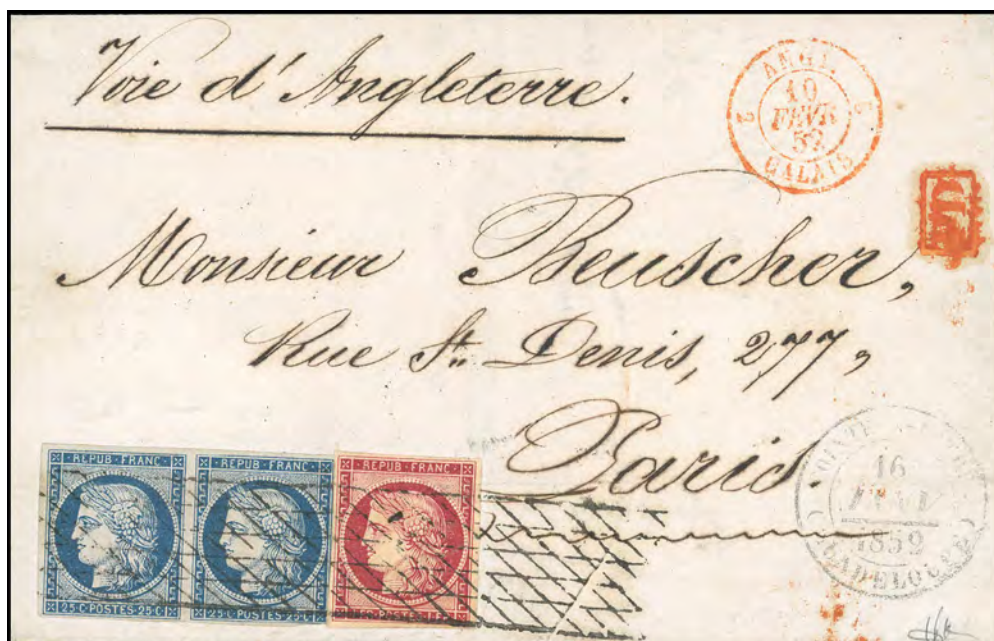 Voie d'Angleterre.
ANGL.
2 10 2
FEVR
52
CALAIS
Monsieur Beuscher,
Rue St. Denis, 277,
Paris.
REPUB·FRANC·
25·C·POSTES·25·C·
REPUB·FRANC·
25·C·POSTES·25·C·
REPUB·FRANC·
16
1852